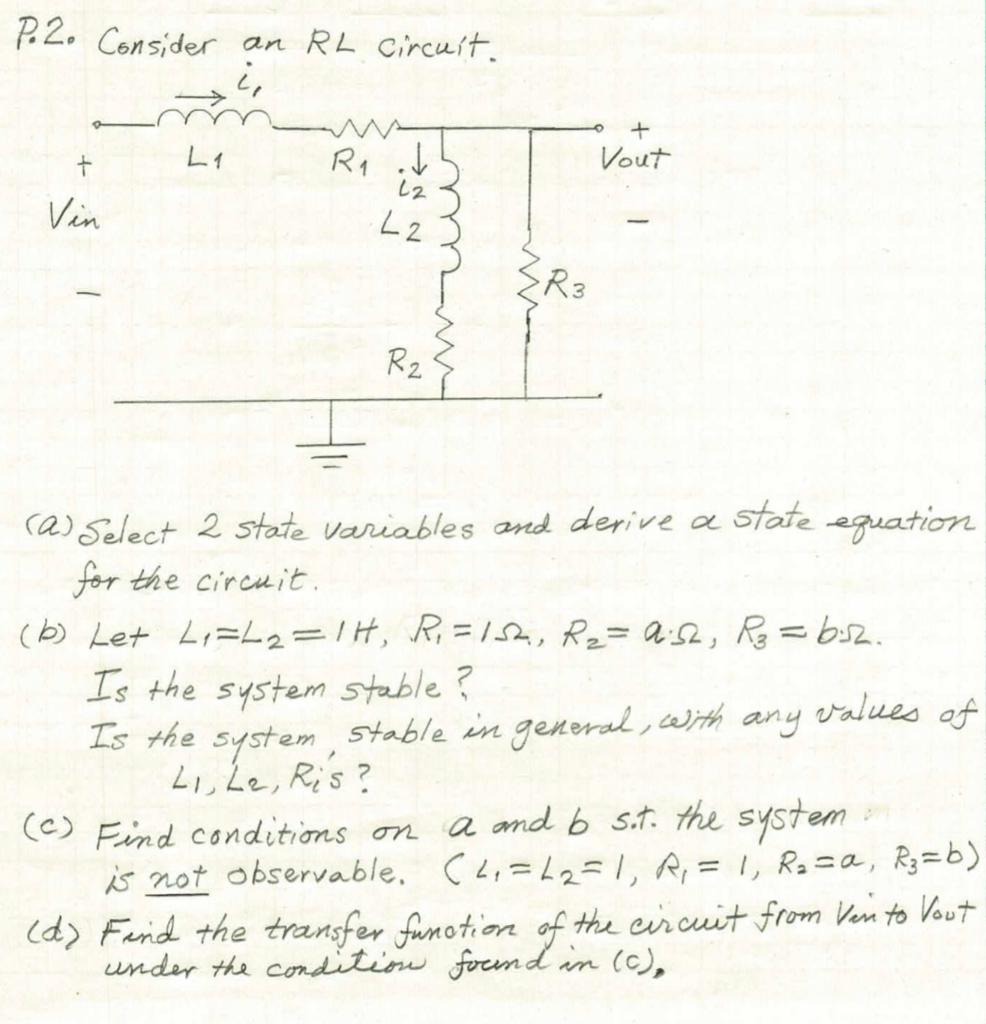 P.2. Consider an RL circuit.
i1
+ L1 R1 i2 + Vout
Vin L2 −
− R3
R2
(a) Select 2 state variables and derive a state equation
for the circuit.
(b) Let L1=L2=1H, R1=1Ω, R2=aΩ, R3=bΩ.
Is the system stable?
Is the system stable in general, with any values of
L1, L2, Ri's?
(c) Find conditions on a and b s.t. the system
is not observable. (L1=L2=1, R1=1, R2=a, R3=b)
(d) Find the transfer function of the circuit from Vin to Vout
under the condition found in (c).